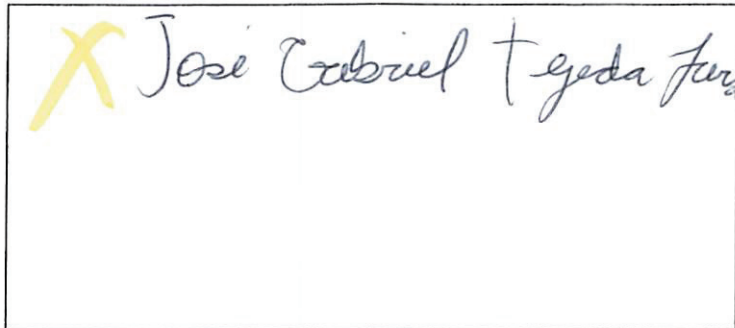 X José Gabriel Tejeda